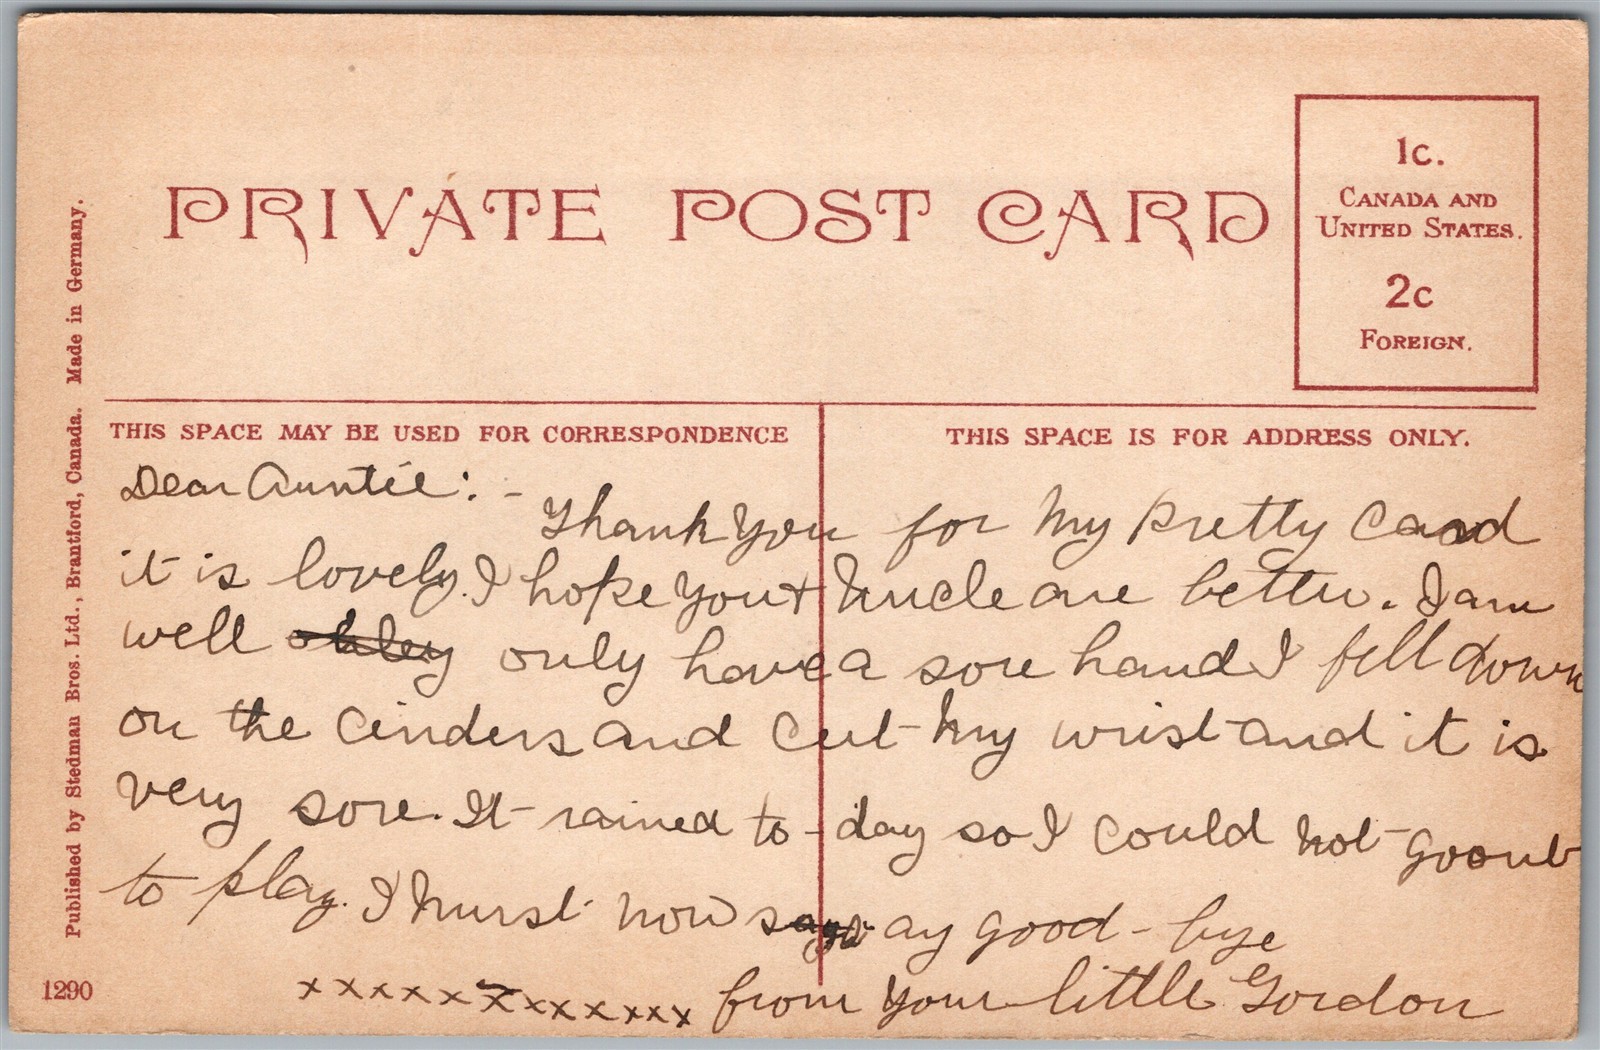 PRIVATE POST CARD
1c.
CANADA AND
UNITED STATES.
2c
FOREIGN.
Published by Stedman Bros. Ltd., Brantford, Canada. Made in Germany.
THIS SPACE MAY BE USED FOR CORRESPONDENCE
THIS SPACE IS FOR ADDRESS ONLY.
Dear Auntie: -
Thank you for my pretty Card
it is lovely. I hope you + Uncle are better. I am
well only have a sore hand I fell down
on the cinders and cut my wrist and it is
very sore. It rained to-day so I could not go out
to play. I must now say good-bye
xxxxxxxxxxxxx from your little Gordon
1290